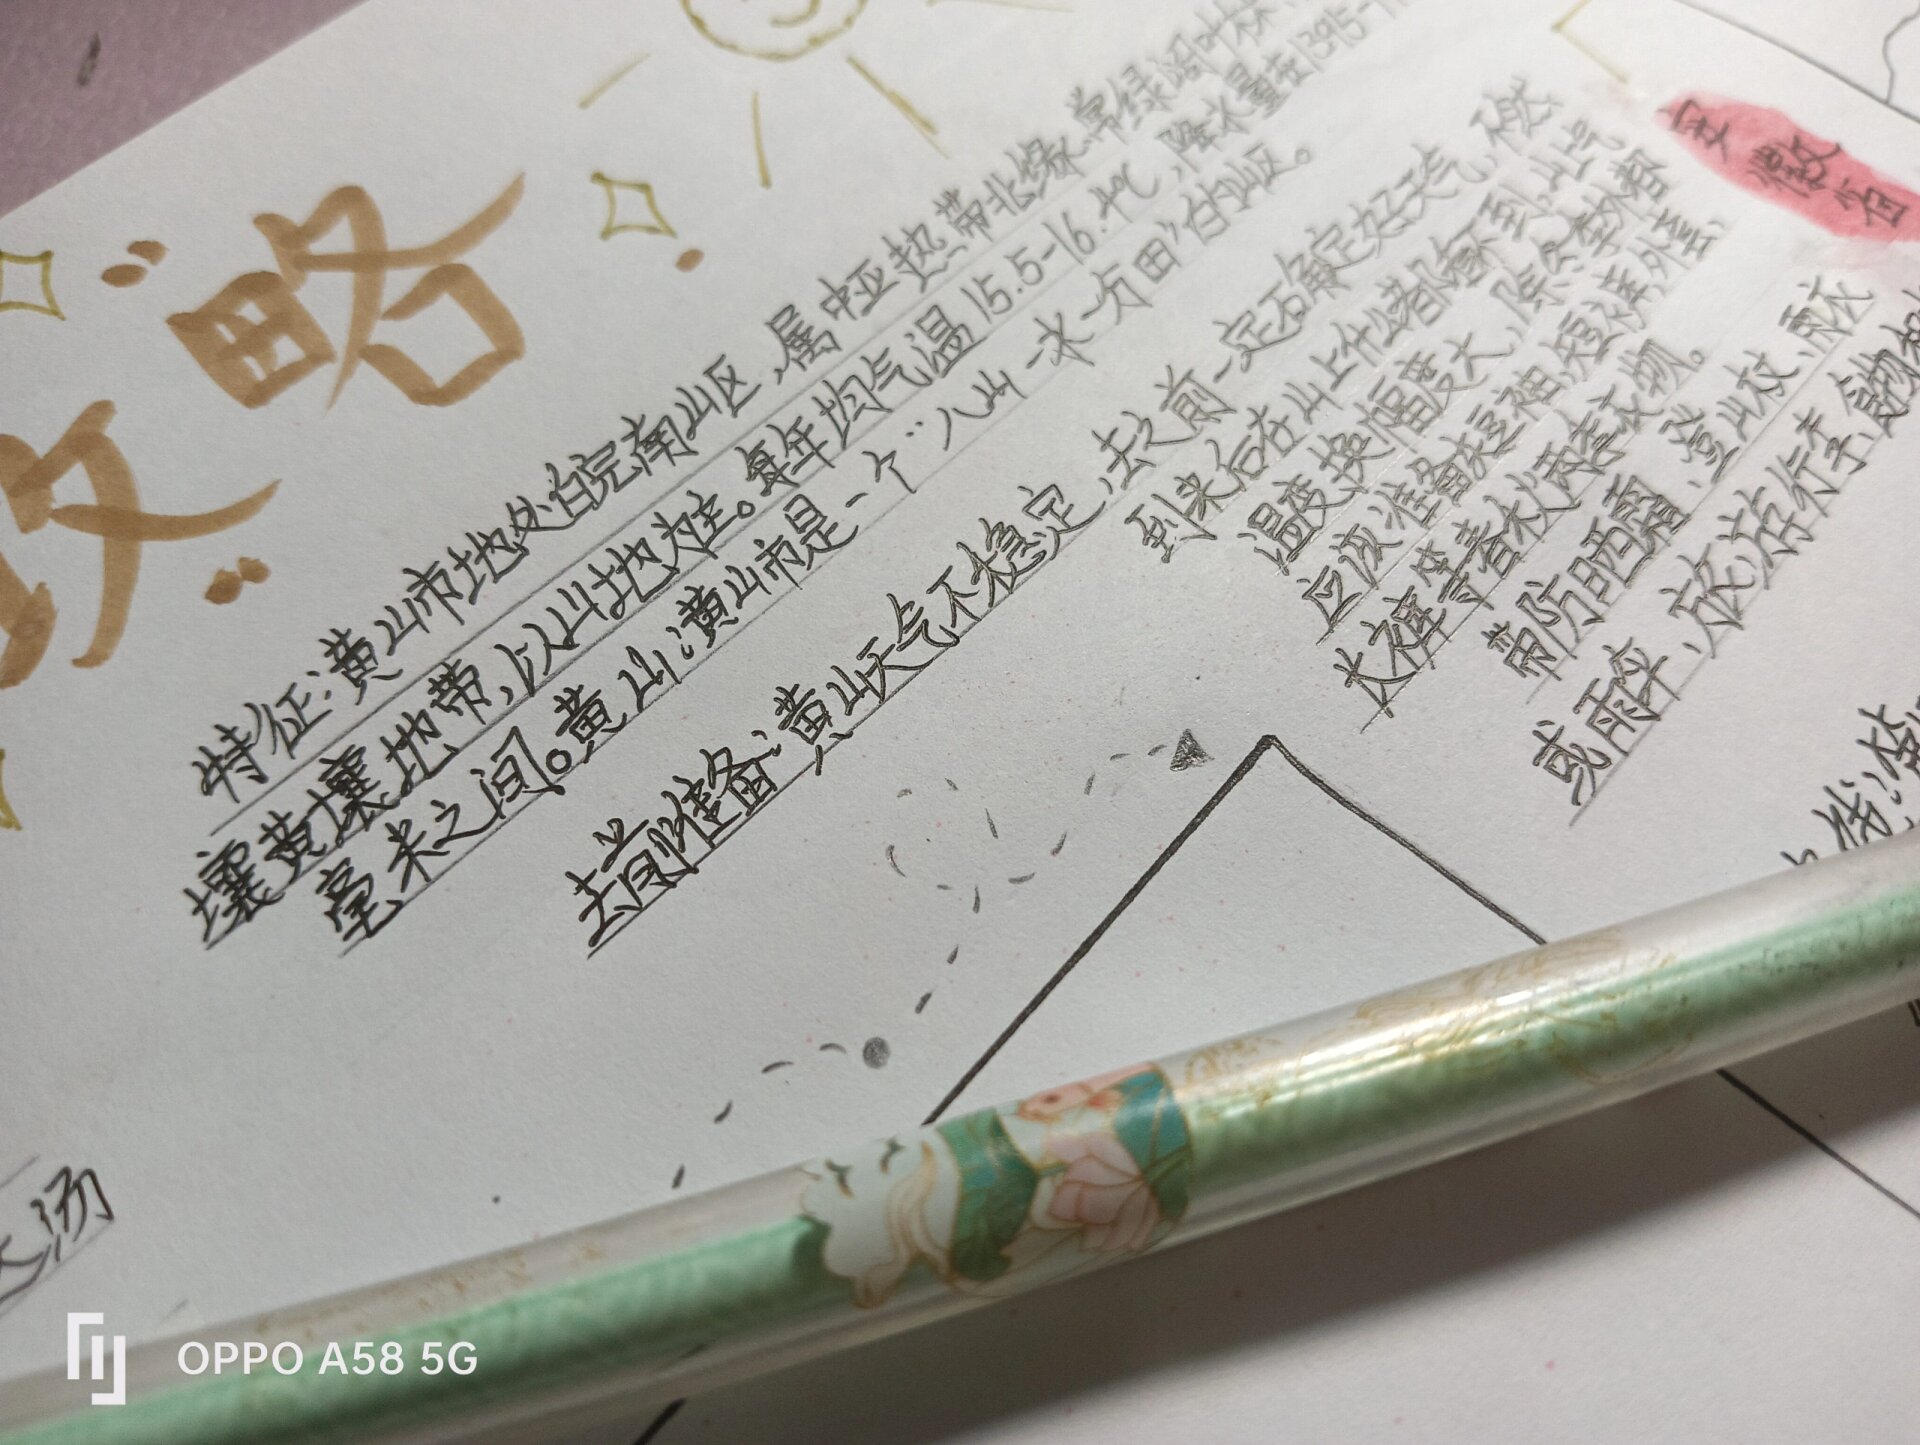 攻略
特征:黄山市地处皖南山区,属中亚热带北缘、常绿阔叶林、
壤黄壤地带,以山地为主。每年均气温15.5-16.4℃,降水量在1395-1
毫米之间。黄山:黄山市是一个“八山一水一分田”的山区。
去前准备:黄山天气不稳定,去之前一定石确定好天气,不然
到来后在山上什么都瞅不到,山上气
温变换幅度大,除冬季外
应该准备短袖,短裤外套,
长裤等春秋两套衣物。
带防晒霜、登山杖、雨衣
或雨伞、放游行李、食物和
安徽省
线:
汤
OPPO A58 5G